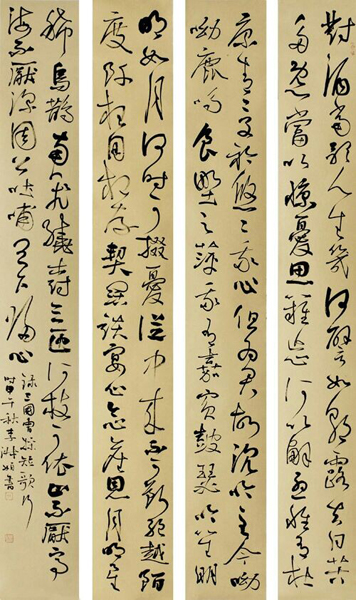 對酒當歌人生幾何譬如朝露去日苦
多慨當以慷憂思難忘何以解憂唯有杜
康青青子衿悠悠我心但為君故沉吟至今呦
呦鹿鳴食野之苹我有嘉賓鼓瑟吹笙明
明如月何時可掇憂從中來不可斷絕越陌
度阡枉用相存契闊談宴心念舊恩月明星
稀烏鵲南飛繞樹三匝何枝可依山不厭高
海不厭深周公吐哺天下歸心
錄三國曹操短歌行
午秋李書